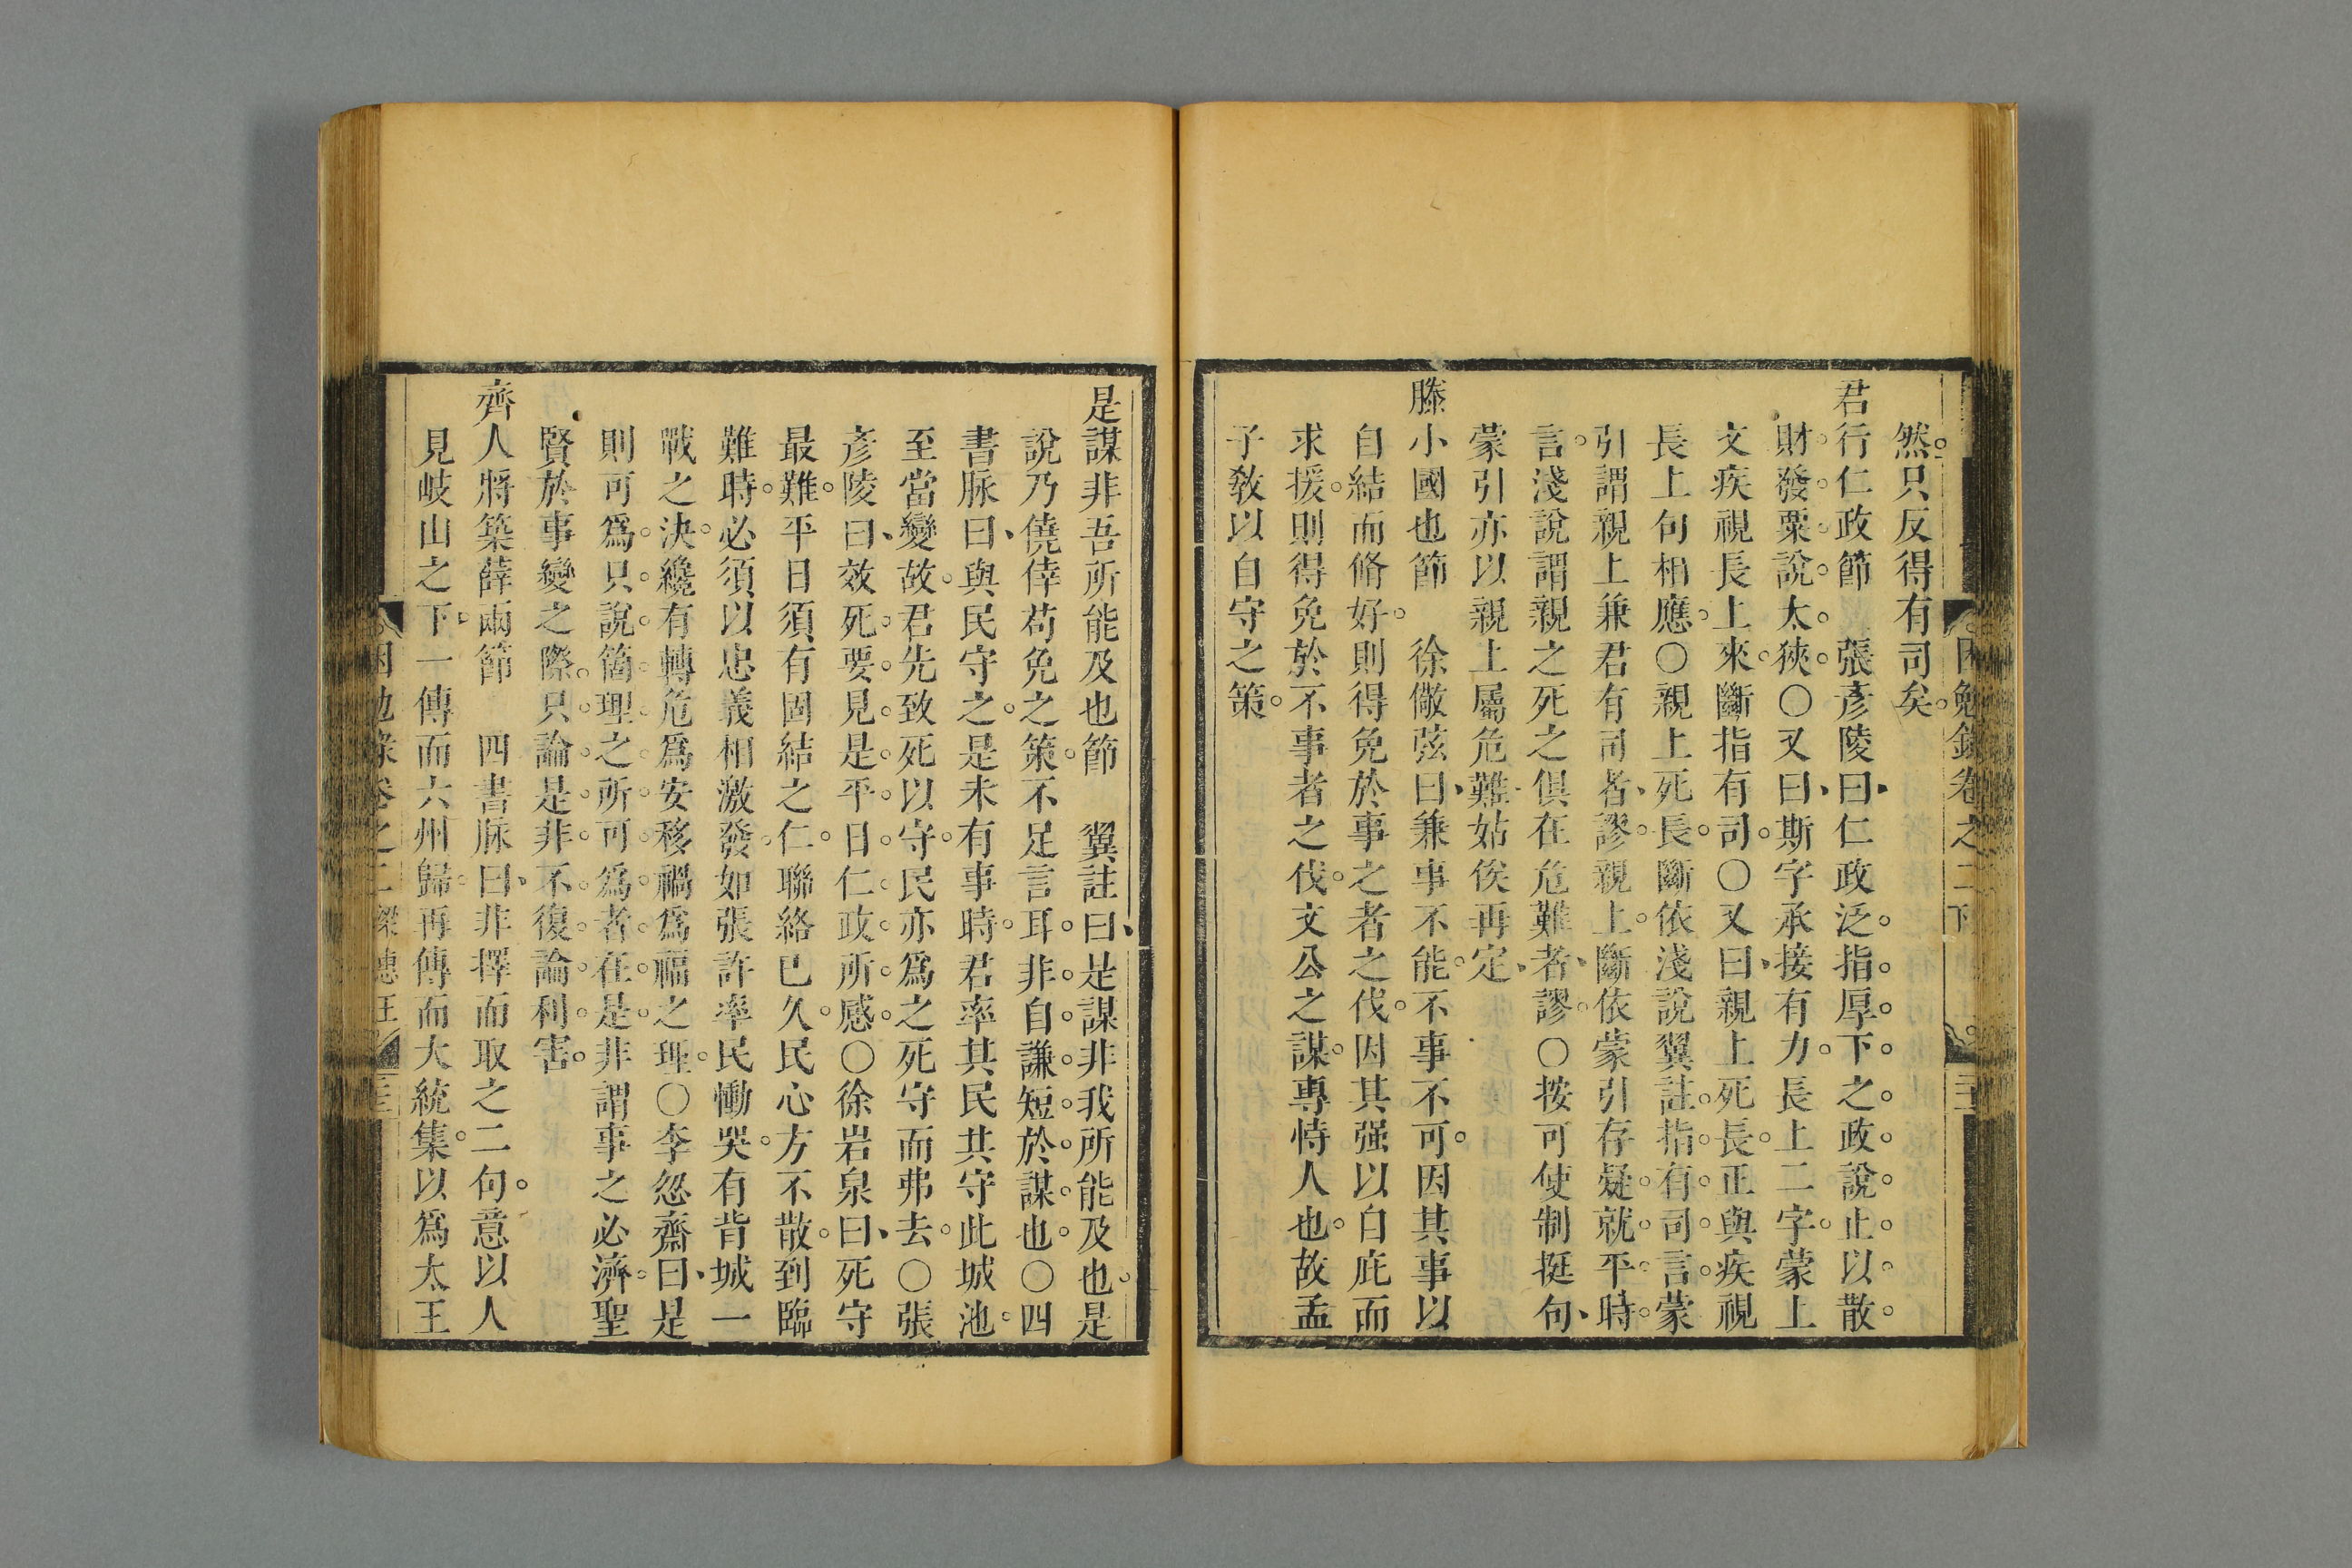 困勉錄卷之二 下
然只反得有司矣
君行仁政節　張彥陵曰仁政泛指厚下之政說止以散
財發粟說太狹○又曰斯字承接有力長上二字蒙上
文疾視長上來斷指有司○又曰親上死長正與疾視
長上句相應○親上死長斷依淺說翼註指有司言蒙
引謂親上兼君有司者謬親上斷依蒙引存疑就平時
言淺說謂親之死之俱在危難者謬○按可使制挺句
蒙引亦以親上屬危難姑俟再定
滕小國也節　徐儆弦曰兼事不能不事不可因其事以
自結而脩好則得免於事之者之伐因其强以自庇而
求援則得免於不事者之伐文公之謀專恃人也故孟
子敎以自守之策
是謀非吾所能及也節　翼註曰是謀非我所能及也是
說乃僥倖苟免之策不足言耳非自謙短於謀也○四
書脉曰與民守之是未有事時君率其民共守此城池
至當變故君先致死以守民亦爲之死守而弗去○張
彥陵曰效死要見是平日仁政所感○徐岩泉曰死守
最難平日須有固結之仁聯絡已久民心方不散到臨
難時必須以忠義相激發如張許率民慟哭有背城一
戰之決纔有轉危爲安移禍爲福之理○李怱齋曰是
則可爲只說箇理之所可爲者在是非謂事之必濟聖
賢於事變之際只論是非不復論利害
齊人將築薛兩節　四書脉曰非擇而取之二句意以人
見岐山之下一傳而六州歸再傳而大統集以爲太王
困勉錄卷之二 梁惠王